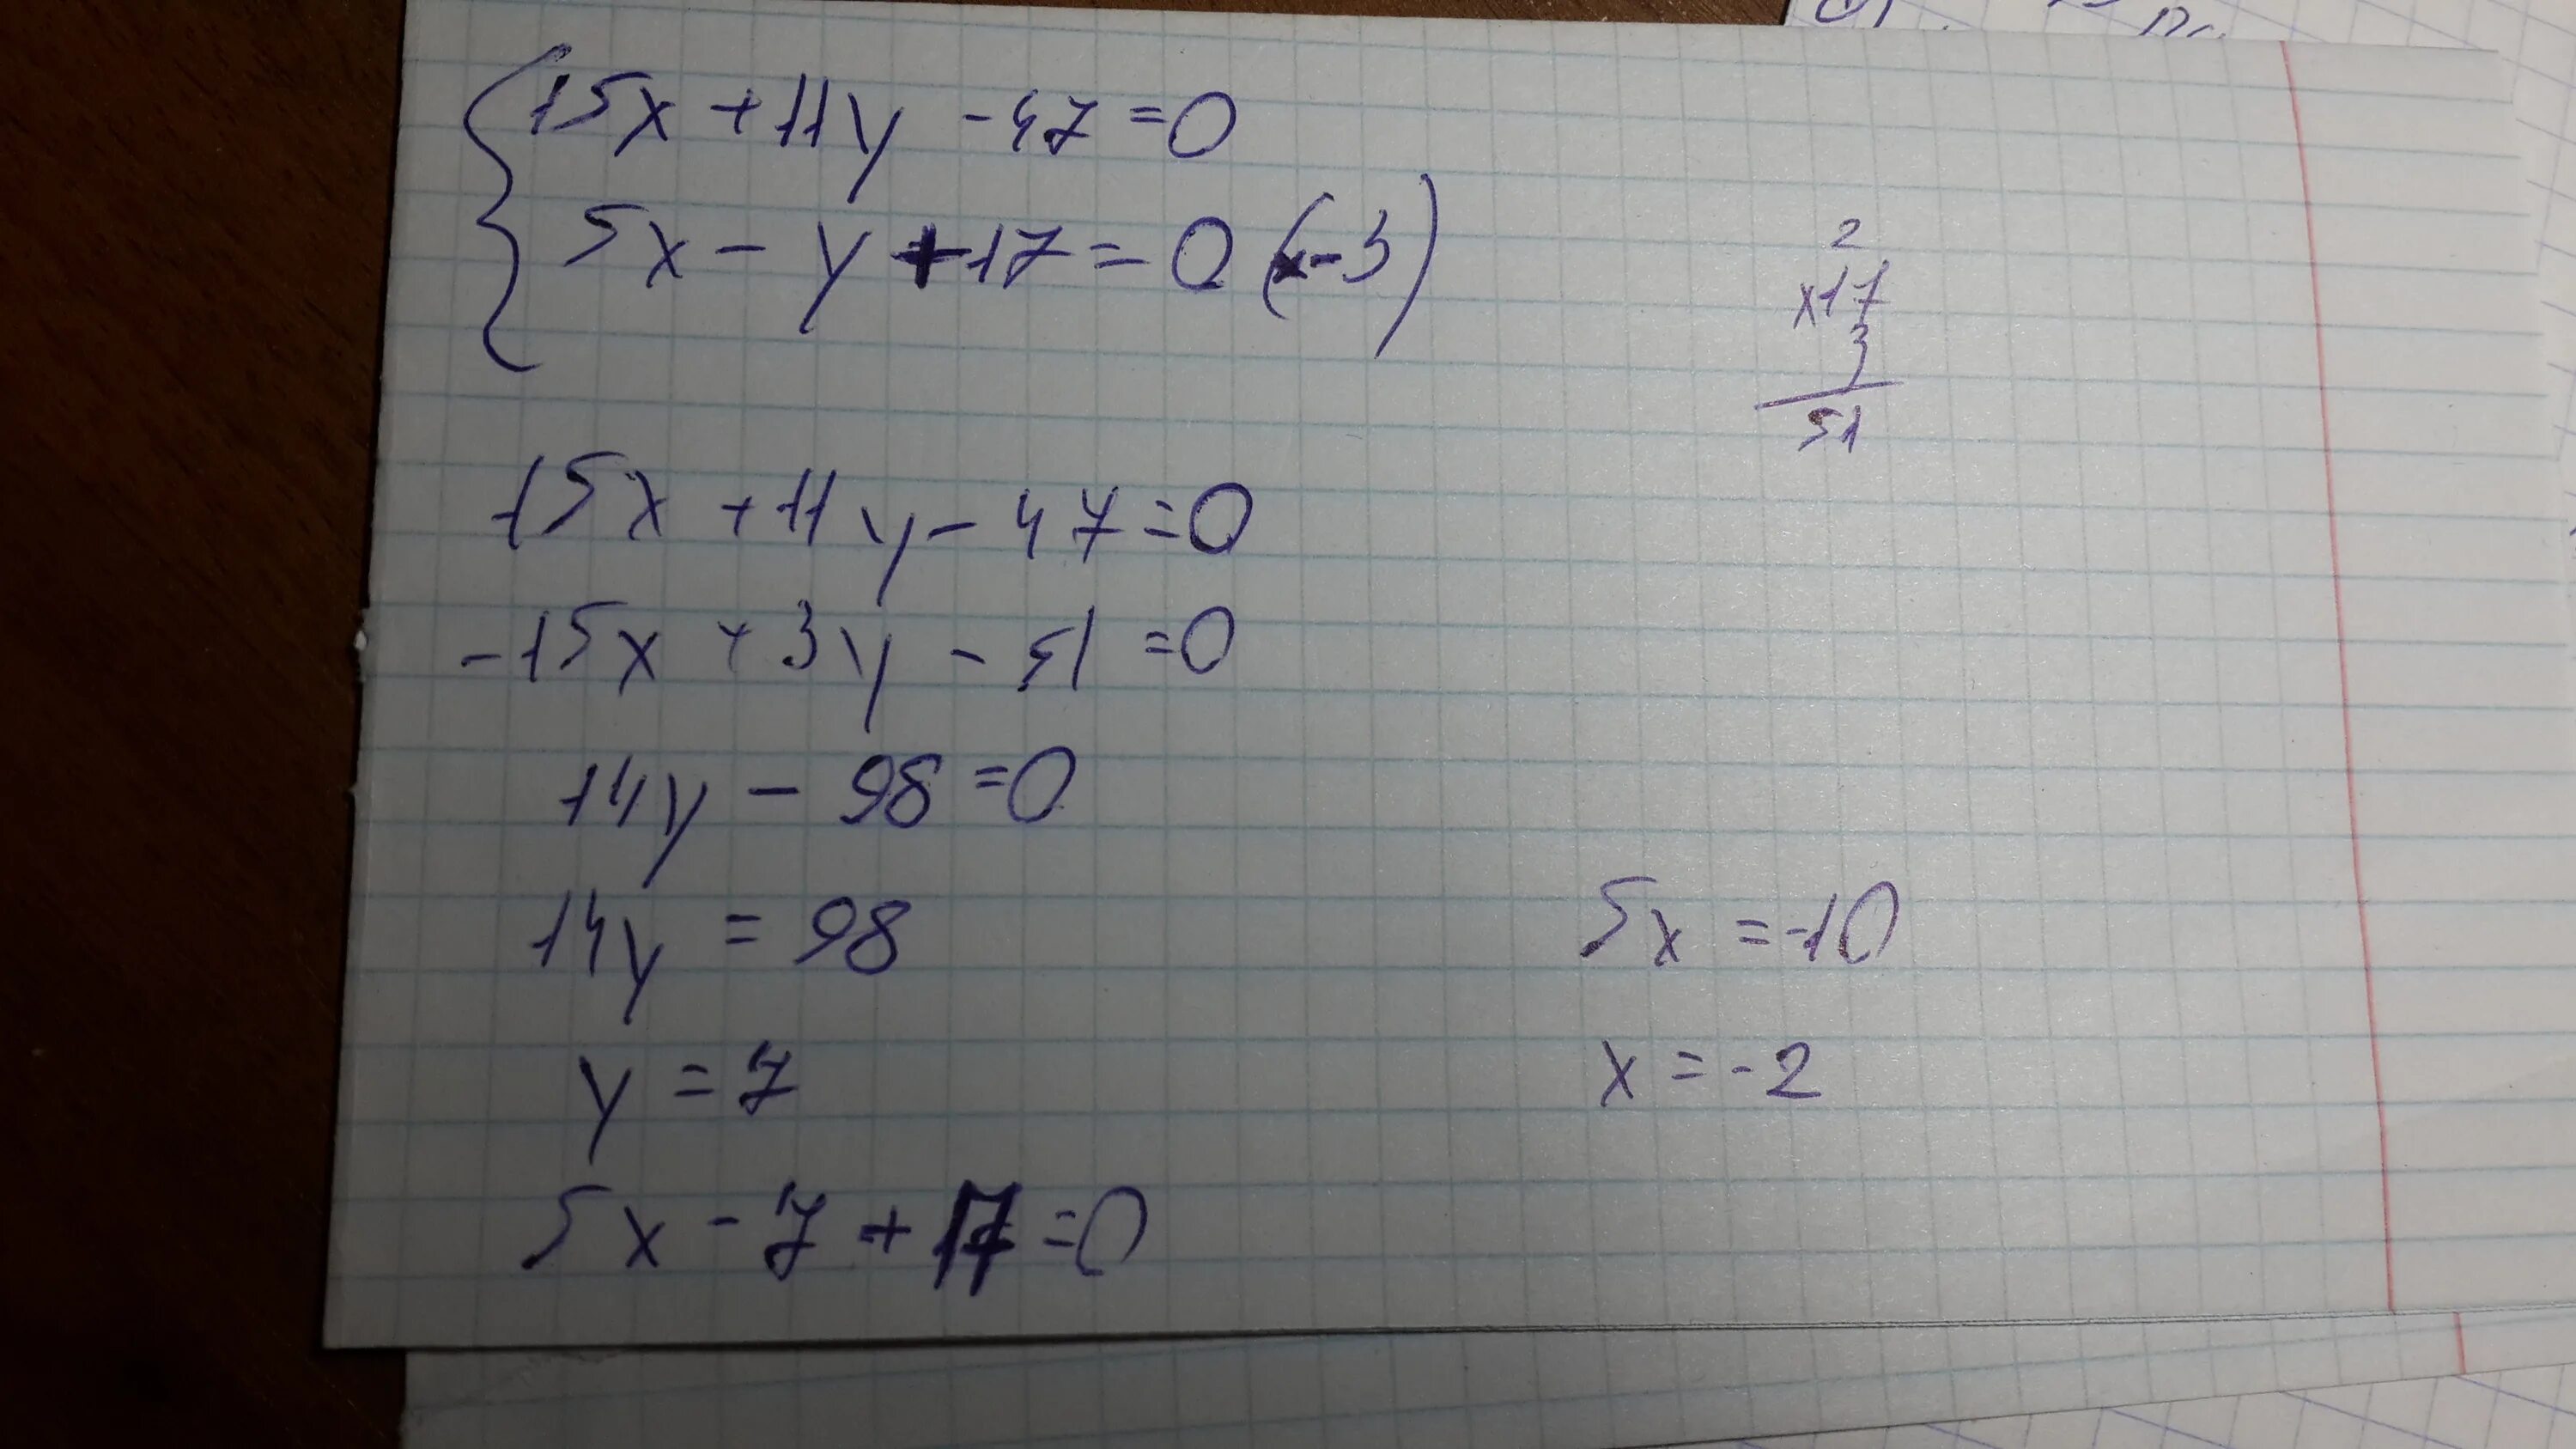 15x + 11y - 47 = 0
5x - y + 17 = 0 (x-3)
2
x17
3
51
15x + 11y - 47 = 0
-15x + 3y - 51 = 0
14y - 98 = 0
14y = 98
y = 7
5x - 7 + 17 = 0
5x = -10
x = -2